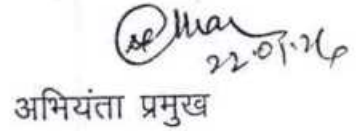 22.01.26
अभियंता प्रमुख